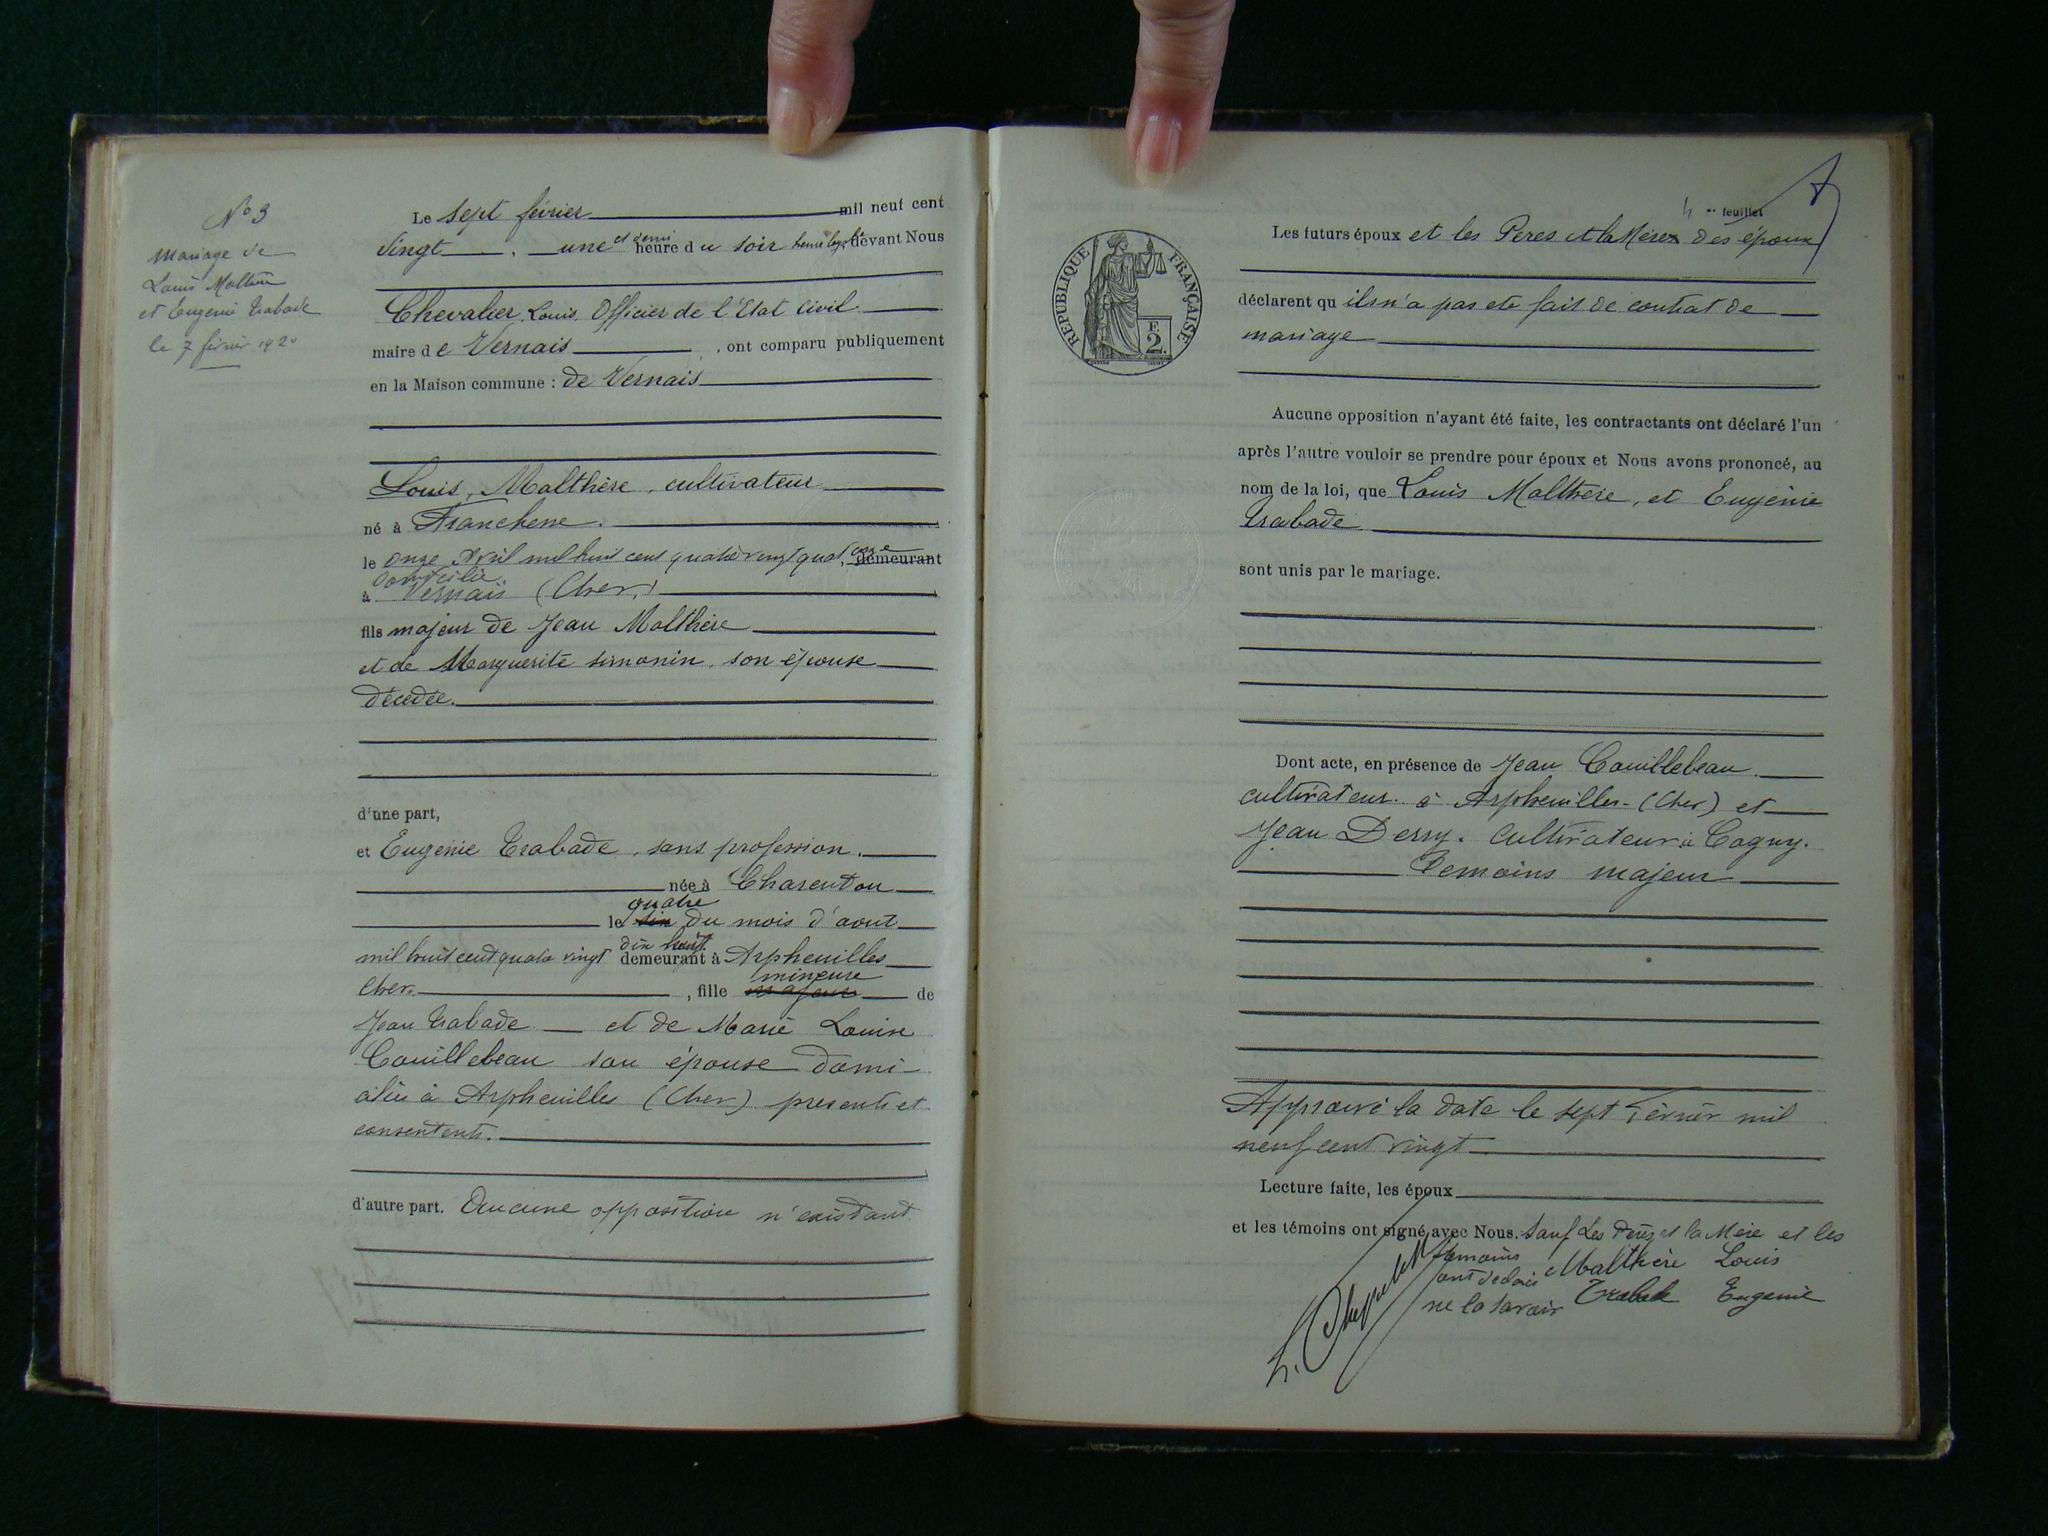 N° 3
Mariage de
Louis Malthère
et Eugenie Trabade
le 7 février 1920
Le sept février mil neuf cent
Vingt. une et demi heure du soir heure légale, devant Nous
Chevalier Louis Officier de l'Etat Civil
maire de Vernais, ont comparu publiquement
en la Maison commune : de Vernais
Louis, Malthère, cultivateur
né à Franchene.
le onze Avril mil huit cent quatre vingt quatorze demeurant
domicilié
à Vernais (Cher)
fils majeur de Jean Malthère
et de Marguerite simonin, son épouse
décédée.
d'une part,
et Eugenie Trabade, sans profession.
née à Charenton
quatre
le six du mois d'aout
dix huit
mil huit cent quatre vingt demeurant à Arpheuilles
mineure
Cher, fille majeur de
Jean Trabade et de Marie Louise
Couillebeau son épouse domi-
ciliés à Arpheuilles (Cher) presents et
consentents.
d'autre part. Aucune opposition n'existant
4 me feuillet
Les futurs époux et les Peres et la Mere des époux
RÉPUBLIQUE FRANÇAISE
F.
2.
déclarent qu'il n'a pas ete fait de contrat de
mariage
Aucune opposition n'ayant été faite, les contractants ont déclaré l'un
après l'autre vouloir se prendre pour époux et Nous avons prononcé, au
nom de la loi, que Louis Malthère, et Eugénie
Trabade
sont unis par le mariage.
Dont acte, en présence de Jean Couillebeau
cultivateur à Arpheuilles (Cher) et
Jean Desry. Cultivateur à Cogny.
Temoins majeur
Approuvé la date le sept Février mil
neuf cent vingt
Lecture faite, les époux
et les témoins ont signé avec Nous. Sauf Les Peres et la Mere et les
temoins
ont declaré
ne le savoir
Malthère Louis
Trabade Eugenie
L. Chevalier